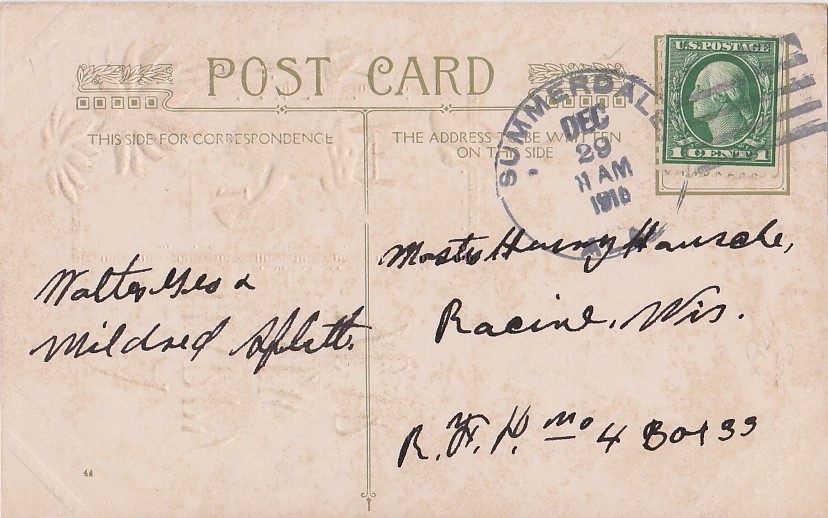 POST CARD
THIS SIDE FOR CORRESPONDENCE
THE ADDRESS TO BE WRITTEN
ON THIS SIDE
SUMMERDALE
DEC
29
11 AM
1916
U.S. POSTAGE
1 CENT 1
Walter Geo &
Mildred Splitt.
Harry
Racine, Wis.
R. F. D. No 4 Box 99
44